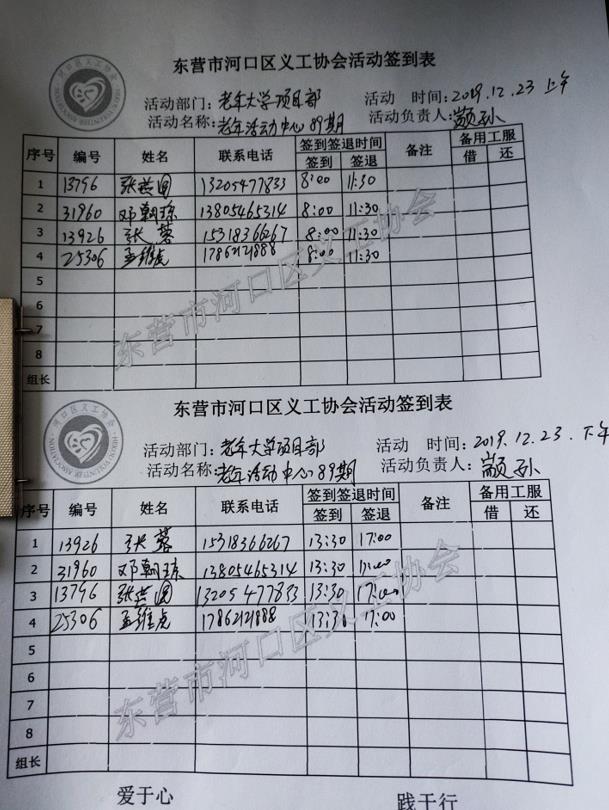 东营市河口区义工协会活动签到表
活动部门：老年大学项目部 活动 时间：2019.12.23 上午
活动名称：老年活动中心89期 活动负责人：颛孙
序号 编号 姓名 联系电话 签到签退时间 备注 备用工服
签到 签退 借 还
1 13796 张芸圆 13205477833 8:00 11:30
2 31960 邓朝琼 13805465314 8:00 11:30
3 13926 张蓉 15318366267 8:00 11:30
4 25306 孟维虎 17862121888 8:00 11:30
5
6
7
8
组长
东营市河口区义工协会
东营市河口区义工协会活动签到表
活动部门：老年大学项目部 活动 时间：2019.12.23.下午
活动名称：老年活动中心89期 活动负责人：颛孙
序号 编号 姓名 联系电话 签到签退时间 备注 备用工服
签到 签退 借 还
1 13926 张蓉 15318366267 13:30 17:00
2 31960 邓朝琼 13805465314 13:30 17:00
3 13796 张芸圆 13205477833 13:30 17:00
4 25306 孟维虎 17862121888 13:30 17:00
5
6
7
8
组长
东营市河口区义工协会
爱于心 践于行